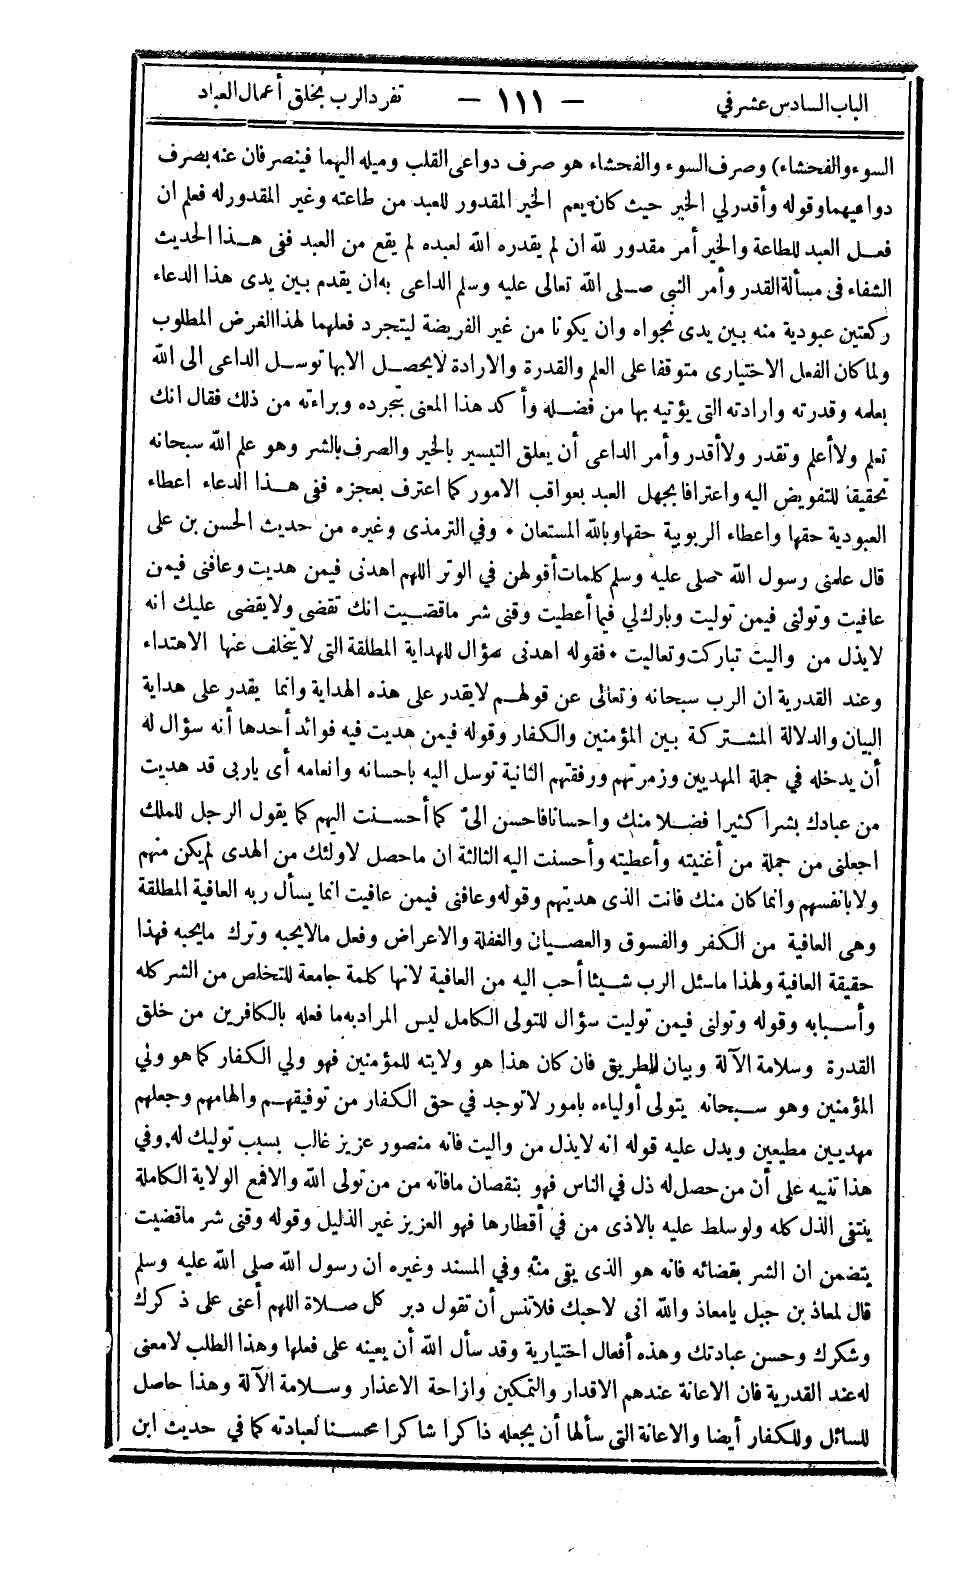 الباب السادس عشر في — ١١١ — تفرد الرب بخلق أعمال العباد
السوء والفحشاء) وصرف السوء والفحشاء هو صرف دواعى القلب وميله اليهما فينصرفان عنه بصرف
دواعيهما وقوله وأقدر لي الخير حيث كان يعم الخير المقدور للعبد من طاعته وغير المقدور له فعلم ان
فعل العبد للطاعة والخير أمر مقدور لله ان لم يقدره الله لعبده لم يقع من العبد ففى هذا الحديث
الشفاء فى مسألة القدر وأمر النبى صلى الله تعالى عليه وسلم الداعى به ان يقدم بين يدى هذا الدعاء
ركعتين عبودية منه بين يدى نجواه وان يكونا من غير الفريضة ليتجرد فعلهما لهذا الغرض المطلوب
ولما كان الفعل الاختيارى متوقفا على العلم والقدرة والارادة لا يحصل الا بها توسل الداعى الى الله
بعلمه وقدرته وارادته التى يؤتيه بها من فضله وأكد هذا المعنى بتجرده وبراءته من ذلك فقال انك
تعلم ولا أعلم وتقدر ولا أقدر وأمر الداعى أن يعلق التيسير بالخير والصرف بالشر وهو علم الله سبحانه
تحقيقا للتفويض اليه واعترافا بجهل العبد بعواقب الامور كما اعترف بعجزه ففى هذا الدعاء اعطاء
العبودية حقها واعطاء الربوبية حقها وبالله المستعان ٠ وفي الترمذى وغيره من حديث الحسن بن على
قال علمنى رسول الله صلى عليه وسلم كلمات أقولهن في الوتر اللهم اهدنى فيمن هديت وعافنى فيمن
عافيت وتولنى فيمن توليت وبارك لي فيما أعطيت وقنى شر ما قضيت انك تقضى ولا يقضى عليك انه
لا يذل من واليت تباركت وتعاليت ٠ فقوله اهدنى سؤال للهداية المطلقة التى لا يتخلف عنها الاهتداء
وعند القدرية ان الرب سبحانه وتعالى عن قولهم لا يقدر على هذه الهداية وانما يقدر على هداية
البيان والدلالة المشتركة بين المؤمنين والكفار وقوله فيمن هديت فيه فوائد أحدها أنه سؤال له
أن يدخله في جملة المهديين وزمرتهم ورفقتهم الثانية توسل اليه باحسانه وانعامه أى ياربى قد هديت
من عبادك بشرا كثيرا فضلا منك واحسانا فاحسن الىّ كما أحسنت اليهم كما يقول الرجل للملك
اجعلنى من جملة من أغنيته وأعطيته وأحسنت اليه الثالثة ان ماحصل لاولئك من الهدى لم يكن منهم
ولا بانفسهم وانما كان منك فانت الذى هديتهم وقوله وعافنى فيمن عافيت انما يسأل ربه العافية المطلقة
وهى العافية من الكفر والفسوق والعصيان والغفلة والاعراض وفعل مالا يحبه وترك مايحبه فهذا
حقيقة العافية ولهذا ماسئل الرب شيئا أحب اليه من العافية لانها كلمة جامعة للتخلص من الشر كله
وأسبابه وقوله وتولنى فيمن توليت سؤال للتولى الكامل ليس المراد به ما فعله بالكافرين من خلق
القدرة وسلامة الآلة وبيان الطريق فان كان هذا هو ولايته للمؤمنين فهو ولي الكفار كما هو ولي
المؤمنين وهو سبحانه يتولى أولياءه بامور لا توجد في حق الكفار من توفيقهم والهامهم وجعلهم
مهديين مطيعين ويدل عليه قوله انه لا يذل من واليت فانه منصور عزيز غالب بسبب توليك له وفي
هذا تنبيه على أن من حصل له ذل في الناس فهو بنقصان مافاته من من تولى الله والا فمع الولاية الكاملة
ينتفى الذل كله ولو سلط عليه بالاذى من في أقطارها فهو العزيز غير الذليل وقوله وقنى شر ماقضيت
يتضمن ان الشر بقضائه فانه هو الذى يقى منه وفي المسند وغيره ان رسول الله صلى الله عليه وسلم
قال لمعاذ بن جبل يامعاذ والله انى لاحبك فلا تنس أن تقول دبر كل صلاة اللهم أعنى على ذكرك
وشكرك وحسن عبادتك وهذه أفعال اختيارية وقد سأل الله أن يعينه على فعلها وهذا الطلب لا معنى
له عند القدرية فان الاعانة عندهم الاقدار والتمكين وازاحة الاعذار وسلامة الآلة وهذا حاصل
للسائل وللكفار أيضا والاعانة التى سألها أن يجعله ذاكرا شاكرا محسنا لعبادته كما في حديث ابن